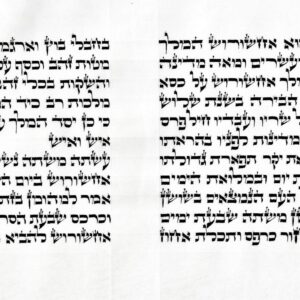 וא אחשורוש המלך
עשרים ומאה מדינה
לך אחשורוש על כסא
הבירה בשנת שלוש
ל שריו ועבדיו חיל פרס
מדינות לפניו בהראתו
את יקר תפארת גדולתו
ת יום ובמלואת הימים
העם הנמצאים בשושן
ן משתה שבעת ימים
חור כרפס ותכלת אחוז
בחבלי בוץ וארגמ
מטות זהב וכסף על
והשקות בכלי זה
מלכות רב כיד ה
כי כן יסד המלך ע
איש ואיש
עשתה משתה נשי
אחשורוש ביום ה
אמר למהומן בזת
וכרכס שבעת הסר
אחשורוש להביא א